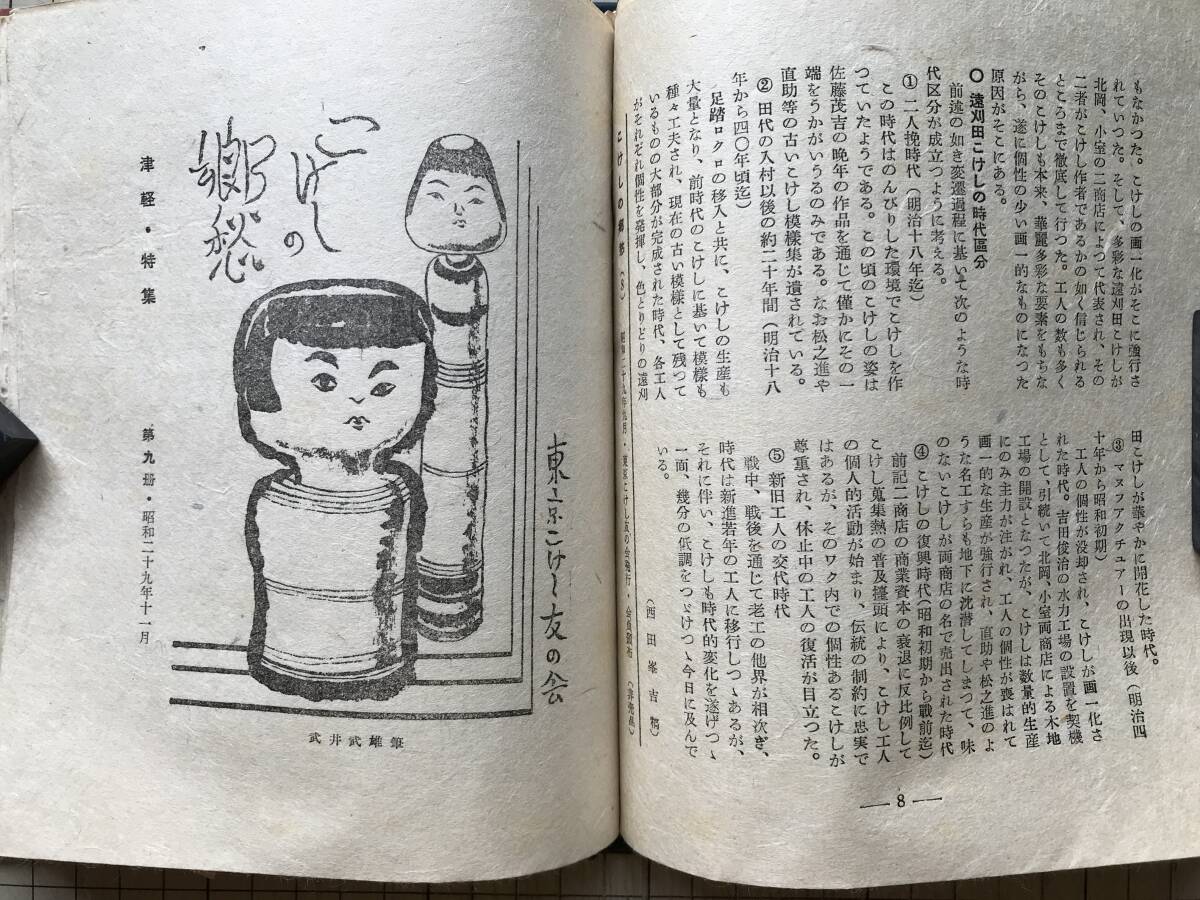 もなかつた。こけしの画一化がそこに強行さ
れていつた。そして、多彩な遠刈田こけしが
北岡、小室の二商店によつて代表され、その
二者がこけし作者であるかの如く信じられる
ところまで徹底して行つた。工人の数も多く
そのこけしも本来、華麗多彩な要素をもちな
がら、遂に個性の少い画一的なものになつた
原因がそこにある。
〇 遠刈田こけしの時代區分
前述の如き変遷過程に基いて次のような時
代区分が成立つように考える。
① 二人挽時代(明治十八年迄)
この時代はのんびりした環境でこけしを作
つていたようである。この頃のこけしの姿は
佐藤茂吉の晩年の作品を通じて僅かにその一
端をうかがいうるのみである。なお松之進や
直助等の古いこけし模様集が遺されている。
② 田代の入村以後の約二十年間(明治十八
年から四〇年頃迄)
足踏ロクロの移入と共に、こけしの生産も
大量となり、前時代のこけしに基いて模様も
種々工夫され、現在の古い模様として残つて
いるものの大部分が完成された時代、各工人
がそれぞれ個性を発揮し、色とりどりの遠刈
田こけしが華やかに開花した時代。
③ マヌフアクチュアーの出現以後(明治四
十年から昭和初期)
工人の個性が没却され、こけしが画一化さ
れた時代。吉田俊治の水力工場の設置を契機
として、引続いて北岡、小室両商店による木地
工場の開設となつたが、こけしは数量的生産
にのみ主力が注がれ、工人の個性が喪はれて
画一的な生産が強行され、直助や松之進のよ
うな名工すらも地下に沈潜してしまつて、味
のないこけしが両商店の名で売出された時代
④ こけしの復興時代(昭和初期から戰前迄)
前記二商店の商業資本の衰退に反比例して
こけし蒐集熱の普及擡頭により、こけし工人
の個人的活動が始まり、伝統の制約に忠実で
はあるが、そのワク内での個性あるこけしが
尊重され、休止中の工人の復活が目立つた。
⑤ 新旧工人の交代時代
戦中、戦後を通じて老工の他界が相次ぎ、
時代は新進若年の工人に移行しつゝあるが、
それに伴い、こけしも時代的変化を遂げつゝ
一面、幾分の低調をつゞけつゝ今日に及んで
いる。
(西田峯吉稿)
こけしの郷愁(8)
昭和二十九年九月・東京こけし友の会発行・会員頒布
(非売品)
— 8 —
東京こけし友の会
こけしの
郷愁
津軽・特集
第九册・昭和二十九年十一月
武井武雄筆